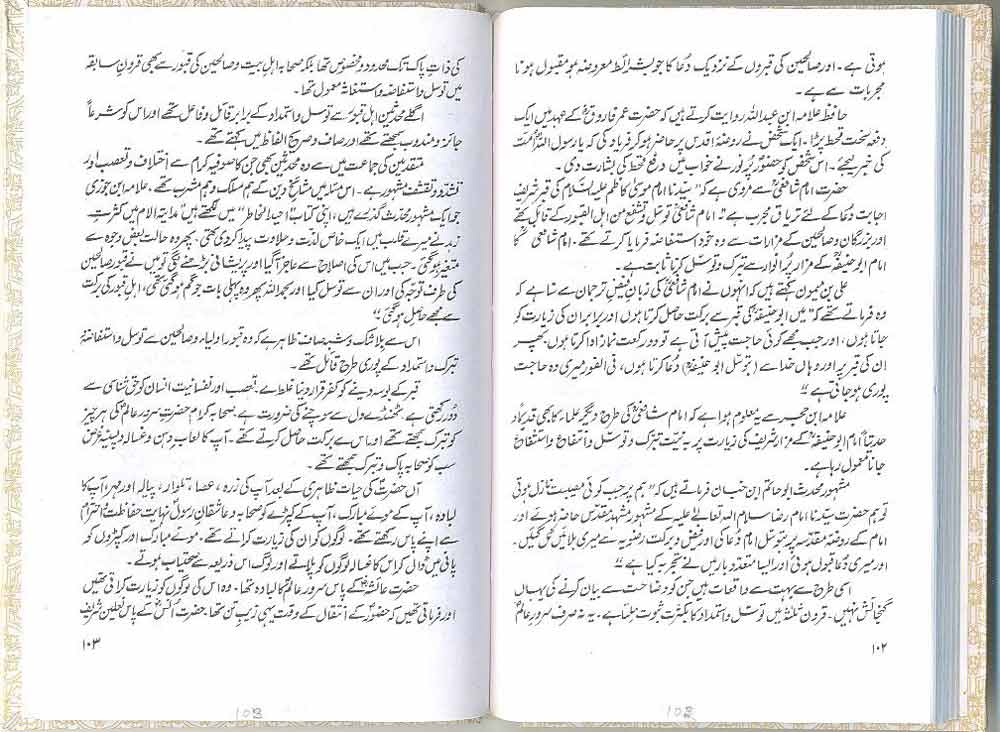 ہوتی ہے۔ اور صالحین کی قبروں کے نزدیک دُعا کا جو بشرائط معروضہ ہو مقبول ہونا
مجربات سے ہے۔
حافظ علامہ ابن عبداللہ روایت کرتے ہیں کہ حضرت عمر فاروقؓ کے عہد میں ایک
دفعہ سخت قحط پڑا۔ ایک شخص نے روضۂ اقدس پر حاضر ہو کر فریاد کی کہ یا رسول اللہؐ اُمّت
کی خبر لیجئے۔ اس شخص کو حضورِ پُرنور نے خواب میں دفعِ قحط کی بشارت دی۔
حضرت امام شافعیؒ سے مروی ہے کہ "سیّدنا امام موسیٰ کاظم علیہ السلام کی قبر شریف
اجابت دُعا کے لئے تریاقِ مجرب ہے" امام شافعیؒ توسّل و تشفع من اہل القبور کے قائل تھے
اور بزرگان و صالحین کے مزارات سے وہ خود استفاضہ فرمایا کرتے تھے۔ امام شافعیؒ کا
امام ابو حنیفہؒ کے مزارِ پُر انوار سے تبرک و توسل کرنا ثابت ہے۔
علی بن میمون کہتے ہیں کہ انہوں نے امام شافعیؒ کی زبانِ فیض ترجمان سے سُنا ہے کہ
وہ فرماتے تھے کہ "میں ابو حنیفہؒ کی قبر سے برکت حاصل کرتا ہوں اور برابر ان کی زیارت کو
جاتا ہوں، اور جب مجھے کوئی حاجت پیش آتی ہے تو دو رکعت نماز ادا کرتا ہوں۔ پھر
ان کی قبر پر اور وہاں خدا سے (بتوسّل ابو حنیفہؒ) دُعا کرتا ہوں، فی الفور میری وہ حاجت
پوری ہو جاتی ہے"
علامہ ابن حجر سے یہ معلوم ہوا ہے کہ امام شافعیؒ کی طرح دیگر علماء کا بھی قدیماً و
حدیثاً امام ابو حنیفہؒ کے مزار شریف کی زیارت پر بہ نیّت تبرّک و توسّل و استشفاع
جانا معمول رہا ہے۔
مشہور محدث ابو حاتم ابن حبان فرماتے ہیں کہ "ہم پر جب کوئی مصیبت نازل ہوتی
تو ہم حضرت سیّدنا امام رضا سلام اللہ تعالےٰ علیہ کے مشہور مشہد مقدّس حاضر ہوئے اور
امام کے روضۂ مقدسہ پر بتوسّل امام دُعا کی اور بفیض و برکت رضویہ سے میری بلائیں ٹل گئیں۔
اور میری دُعا قبول ہوئی اور ایسا متعدّد بار میں نے تجربہ کیا ہے"
اسی طرح سے بہت سے واقعات ہیں جن کو وضاحت سے بیان کرنے کی یہاں
گنجائش نہیں۔ قرون ثلٰثہ میں توسّل و استمداد کا بکثرت ثبوت ملتا ہے۔ یہ نہ صرف سرورِ عالمؐ
۱۰۲
کی ذاتِ پاک تک محدود و مخصوص تھا بلکہ صحابہ اہلِ بیت و صالحین کی قبور سے بھی قرونِ سابقہ
میں توسّل و استفاضہ و استغاثہ معمول تھا۔
اگلے محدثین اہلِ قبور سے توسل و استمداد کے برابر قائل و فاعل تھے اور اس کو شرعاً
جائز و مندوب سمجھتے تھے اور صاف و صریح الفاظ میں کہتے تھے۔
متقدمین کی جماعت میں سے وہ محدثین بھی جن کا صوفیہ کرام سے اختلاف و تعصب اور
تشدّد و تقشف مشہور ہے۔ اس مسئلہ میں مشائخِ دین کے ہم مسلک و ہم مشرب تھے، علامہ ابن جوزی
جو ایک مشہور محدث گذرے ہیں، اپنی کتاب "صید الخاطر" میں لکھتے ہیں کثرتِ
زہد نے میرے قلب میں ایک خاص لذّت و حلاوت پیدا کر دی تھی، پھر وہ حالت بعض وجوہ سے
متغیر ہو گئی۔ جب میں اس کی اصلاح سے عاجز آ گیا اور پریشانی بڑھنے لگی تو میں نے قبور صالحین
کی طرف توجّہ کی اور ان سے توسل کیا اور بحمد اللہ پھر وہ پہلی بات جو گم ہو گئی تھی، اہلِ قبور کی برکت
سے مجھے حاصل ہو گئی"
اس سے بلا شک و شبہ صاف ظاہر ہے کہ وہ قبورِ اولیاء و صالحین سے توسل و استفاضہ
تبرّک و استمداد کے پوری طرح قائل تھے۔
قبر کے بوسہ دینے کو کفر قرار دینا غلط ہے۔ تعصب اور نفسانیت انسان کو حق شناسی سے
دُور رکھتی ہے، ٹھنڈے دل سے سوچنے کی ضرورت ہے۔ صحابہ کرام حضرت سرورِ عالمؐ کی ہر چیز
کو تبرّک سمجھتے تھے اور اس سے برکت حاصل کرتے تھے۔ آپ کا لعابِ دہن و غسالہ و پسینہ غرض
سب کو صحابہ پاک و تبرک سمجھتے تھے۔
آں حضرتؐ کی حیات ظاہری کے بعد آپ کی زرہ، عصا، تلوار، پیالہ اور مہر، آپ کا
لبادہ، آپ کے موئے مبارک، آپ کے کپڑے کو صحابہ و عاشقانِ رسولؐ نہایت حفاظت و احترام
سے اپنے پاس رکھتے تھے۔ لوگوں کو ان کی زیارت کراتے تھے۔ موئے مبارک اور کپڑوں کو
پانی میں ڈال کر اس کا غسالہ لوگوں کو پلاتے اور لوگ اس ذریعہ سے صحتیاب ہوتے۔
حضرت عائشہؓ کے پاس سرورِ عالمؐ کا لبادہ تھا۔ وہ اس کی لوگوں کو زیارت کراتی تھیں
اور فرماتی تھیں کہ حضورؐ کے انتقال کے وقت یہی زیبِ تن تھا۔ حضرت انسؓ کے پاس نعلین شریف
۱۰۳
103
102